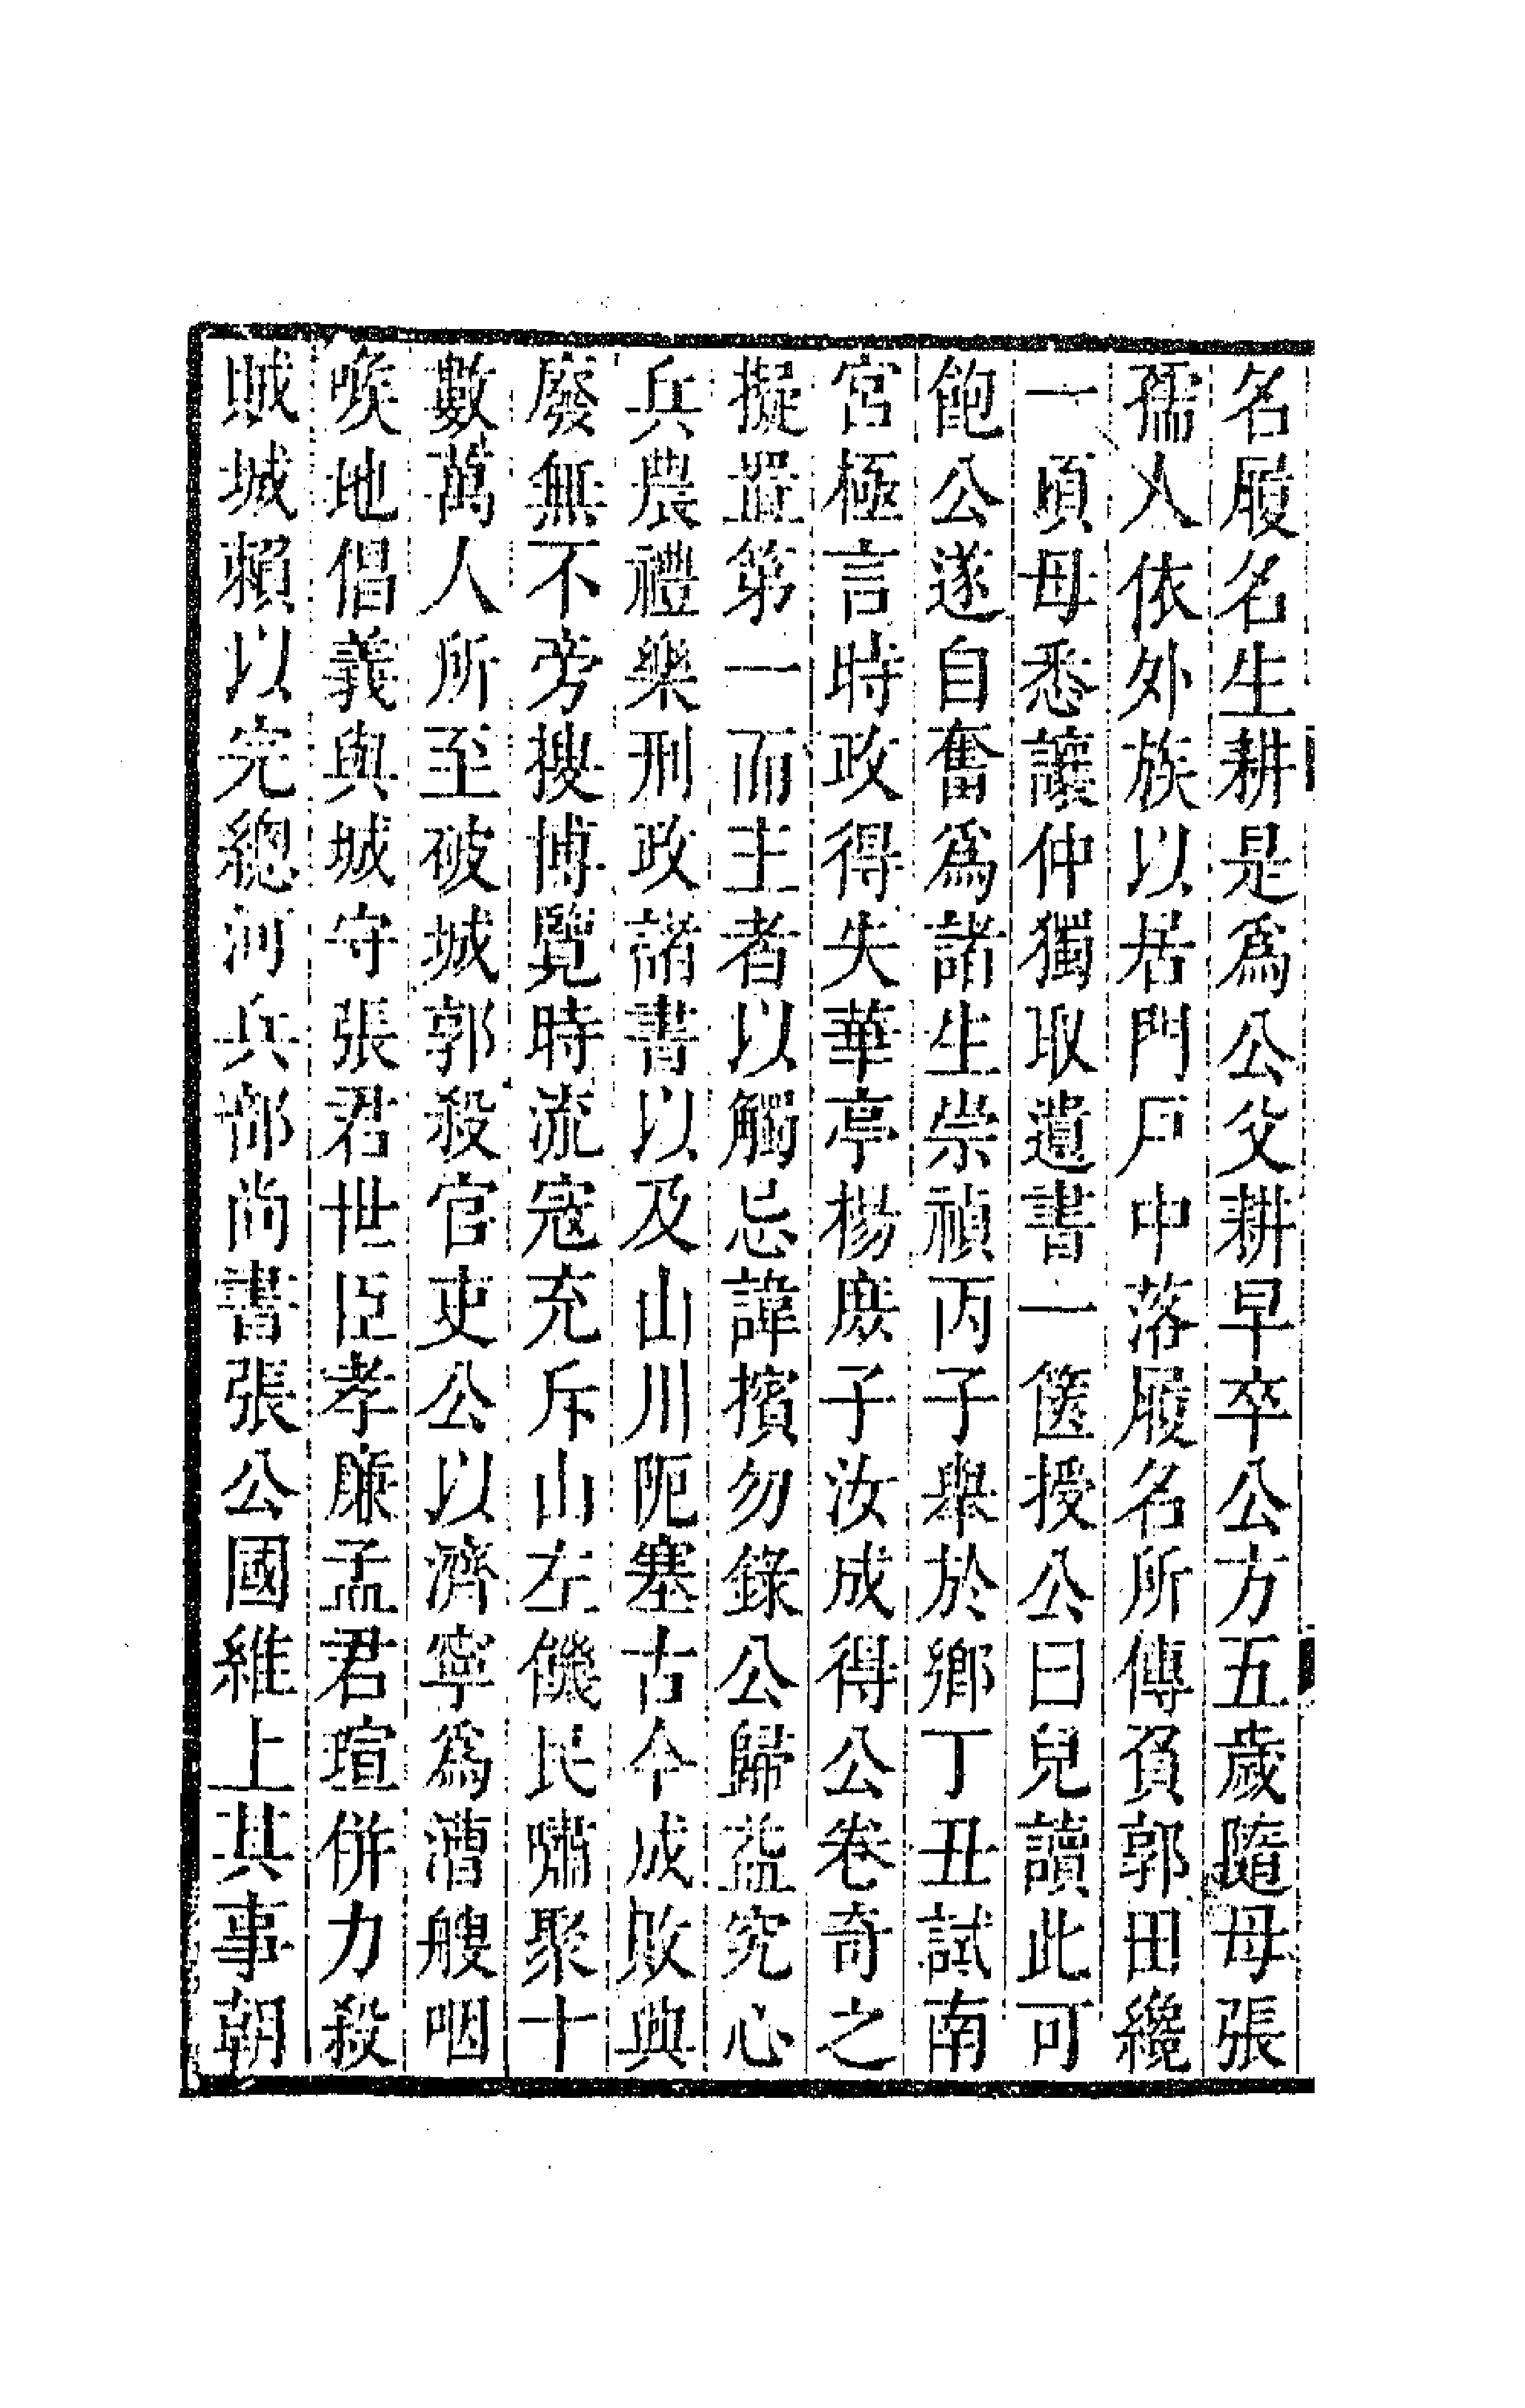 名履名生耕是爲公父耕早卒公方五歲隨母張
孺人依外族以居門戶中落履名所傳負郭田纔
一頃母悉讓仲獨取遺書一篋授公曰兒讀此可
飽公遂自奮爲諸生崇禎丙子舉於鄉丁丑試南
宮極言時政得失華亭楊庶子汝成得公卷奇之
擬置第一而主者以觸忌諱擯勿錄公歸益究心
兵農禮樂刑政諸書以及山川阨塞古今成敗興
廢無不旁搜博覽時流寇充斥山左饑民嘯聚十
數萬人所至破城郭殺官吏公以濟寧爲漕艘咽
喉地倡義與城守張君世臣孝廉孟君瑄併力殺
賊城賴以完總河兵部尚書張公國維上其事朝